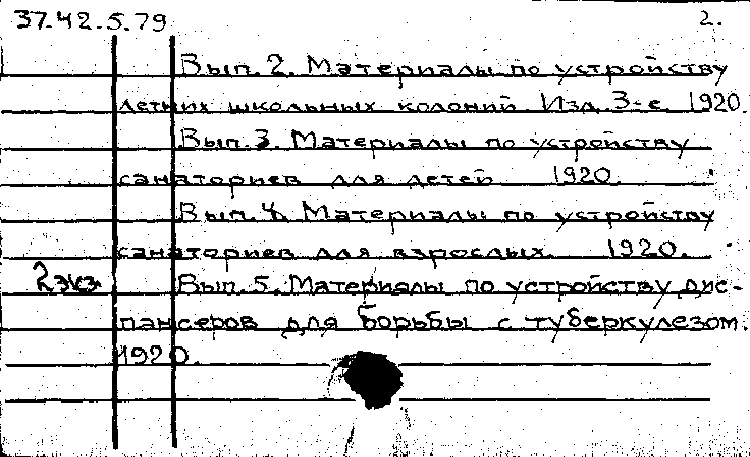 37.42.5.79 2.
Вып. 2. Материалы по устройству
летних школьных колоний. Изд. 3-е. 1920
Вып. 3. Материалы по устройству
санаториев для детей 1920.
Вып. 4. Материалы по устройству
санаториев для взрослых. 1920.
2 экз Вып. 5. Материалы по устройству дис-
пансеров для борьбы с туберкулезом.
1920.